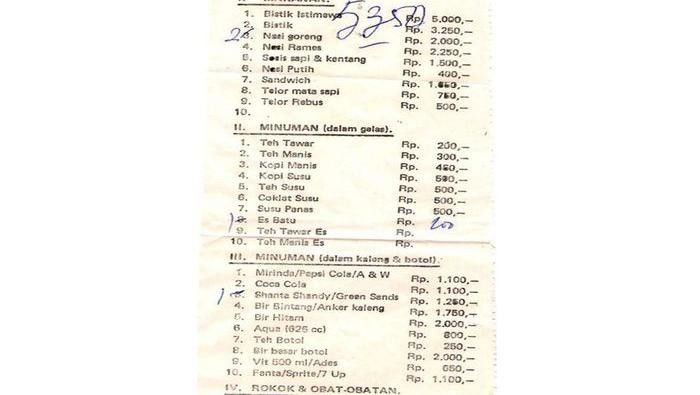 MAKANAN.
5350
1. Bistik Istimewa Rp. 5.000,—
2. Bistik Rp. 3.250,—
2 3. Nasi goreng Rp. 2.000,—
4. Nasi Rames Rp. 2.250,—
5. Sosis sapi & kentang Rp. 1.500,—
6. Nasi Putih Rp. 400,—
7. Sandwich Rp.
8. Telor mata sapi Rp. 750,—
9. Telor Rebus Rp. 500,—
10.
II. MINUMAN (dalam gelas).
1. Teh Tawar Rp. 200,—
2. Teh Manis Rp. 300,—
3. Kopi Manis Rp. 450,—
4. Kopi Susu Rp. 500,—
5. Teh Susu Rp. 500,—
6. Coklat Susu Rp. 500,—
7. Susu Panas Rp. 500,—
1 8. Es Batu Rp. 100
9. Teh Tawar Es Rp.
10. Teh Manis Es Rp.
III. MINUMAN (dalam kaleng & botol).
1. Mirinda/Pepsi Cola/A & W Rp. 1.100,—
2. Coca Cola Rp. 1.100,—
1 3. Shanta Shandy/Green Sands Rp. 1.250,—
4. Bir Bintang/Anker kaleng Rp. 1.750,—
5. Bir Hitam Rp. 2.000,—
6. Aqua (625 cc) Rp.
7. Teh Botol Rp. 250,—
8. Bir besar botol Rp. 2.000,—
9. Vit 500 ml/Ades Rp. 650,—
10. Fanta/Sprite/7 Up Rp. 1.100,—
IV. ROKOK & OBAT-OBATAN.